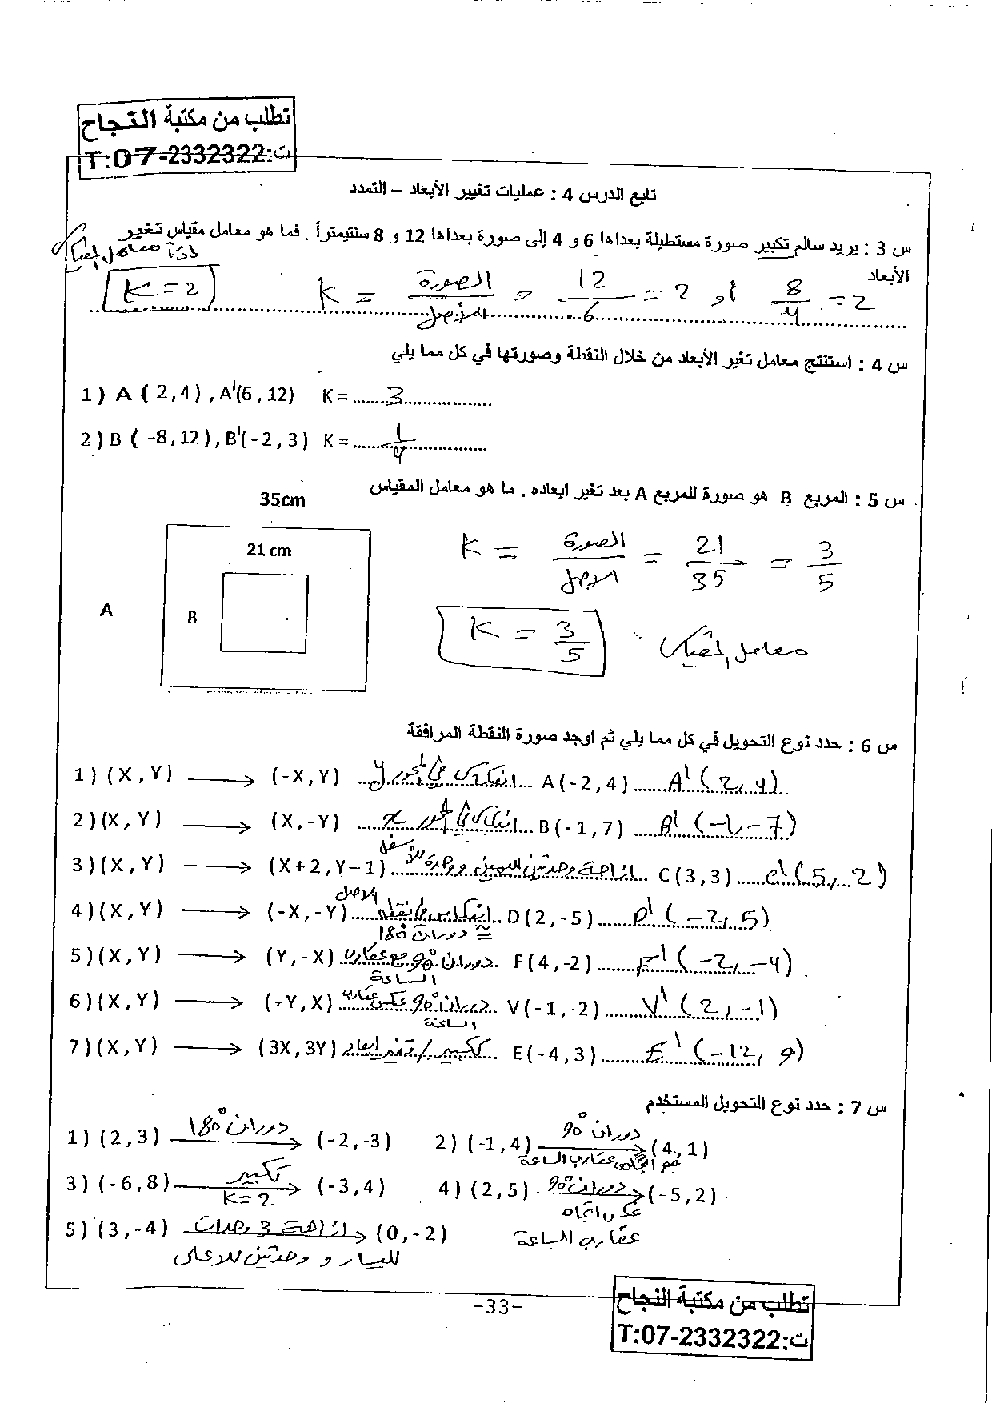 تطلب من مكتبة النجاح
ت:T:07-2332322
تابع الدرس 4 : عمليات تغيير الأبعاد – التمدد
س 3 : يريد سالم تكبير صورة مستطيلة بعداها 6 و 4 إلى صورة بعداها 12 و 8 سنتيمتراً . فما هو معامل مقياس تغير
الأبعاد
إذاً معامل المقياس
K = 2
K = الصورة / الأصل = 12/6 = 2 أو 8/4 = 2
س 4 : استنتج معامل تغير الأبعاد من خلال النقطة وصورتها في كل مما يلي
1) A ( 2,4) , A'(6,12) K= 3
2) B ( -8,12), B'(-2,3) K= 1/4
س 5 : المربع B هو صورة للمربع A بعد تغير ابعاده . ما هو معامل المقياس
35cm
21 cm
A
B
K = الصورة / الأصل = 21/35 = 3/5
K = 3/5 معامل المقياس
س 6 : حدد نوع التحويل في كل مما يلي ثم اوجد صورة النقطة المرافقة
1) (X,Y) → (-X,Y) انعكاس في المحور y A(-2,4) A'(2,4)
2)(X,Y) → (X,-Y) انعكاس في محور x B(-1,7) B'(-1,-7)
3)(X,Y) → (X+2,Y-1) ازاحة وحدتين لليمين ووحدة للأسفل C(3,3) C'(5,2)
4)(X,Y) → (-X,-Y) انعكاس في نقطة الأصل D(2,-5) D'(-2,5)
≅ دوران 180°
5)(X,Y) → (Y,-X) دوران 90° مع عقارب الساعة F(4,-2) F'(-2,-4)
6)(X,Y) → (-Y,X) دوران 90° عكس عقارب الساعة V(-1,-2) V'(2,-1)
7)(X,Y) → (3X,3Y) تكبير / تغير ابعاد E(-4,3) E'(-12,9)
س 7 : حدد نوع التحويل المستخدم
1) (2,3) دوران 180° → (-2,-3) 2) (-1,4) دوران 90° → (4,1)
عقارب الساعة
3) (-6,8) تكبير K=2 → (-3,4) 4) (2,5) دوران 90° → (-5,2)
عكس اتجاه
عقارب الساعة
5) (3,-4) ازاحة 3 وحدات → (0,-2)
لليسار و وحدتين للاعلى
-33-
تطلب من مكتبة النجاح
ت:T:07-2332322